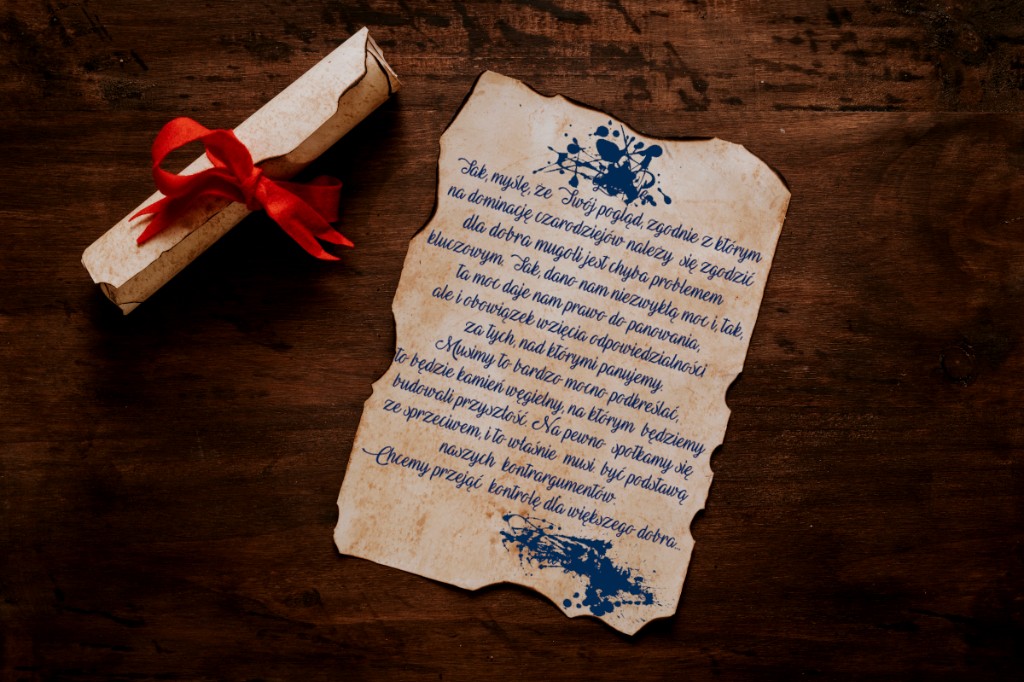 Tak, myślę, że Twój pogląd, zgodnie z którym
na dominację czarodziejów należy się zgodzić
dla dobra mugoli jest chyba problemem
kluczowym. Tak, dano nam niezwykłą moc i, tak,
ta moc daje nam prawo do panowania,
ale i obowiązek wzięcia odpowiedzialności
za tych, nad którymi panujemy.
Musimy to bardzo mocno podkreślać,
to będzie kamień węgielny, na którym będziemy
budowali przyszłość. Na pewno spotkamy się
ze sprzeciwem, i to właśnie musi być podstawą
naszych kontrargumentów.
Chcemy przejąć kontrolę dla większego dobra...